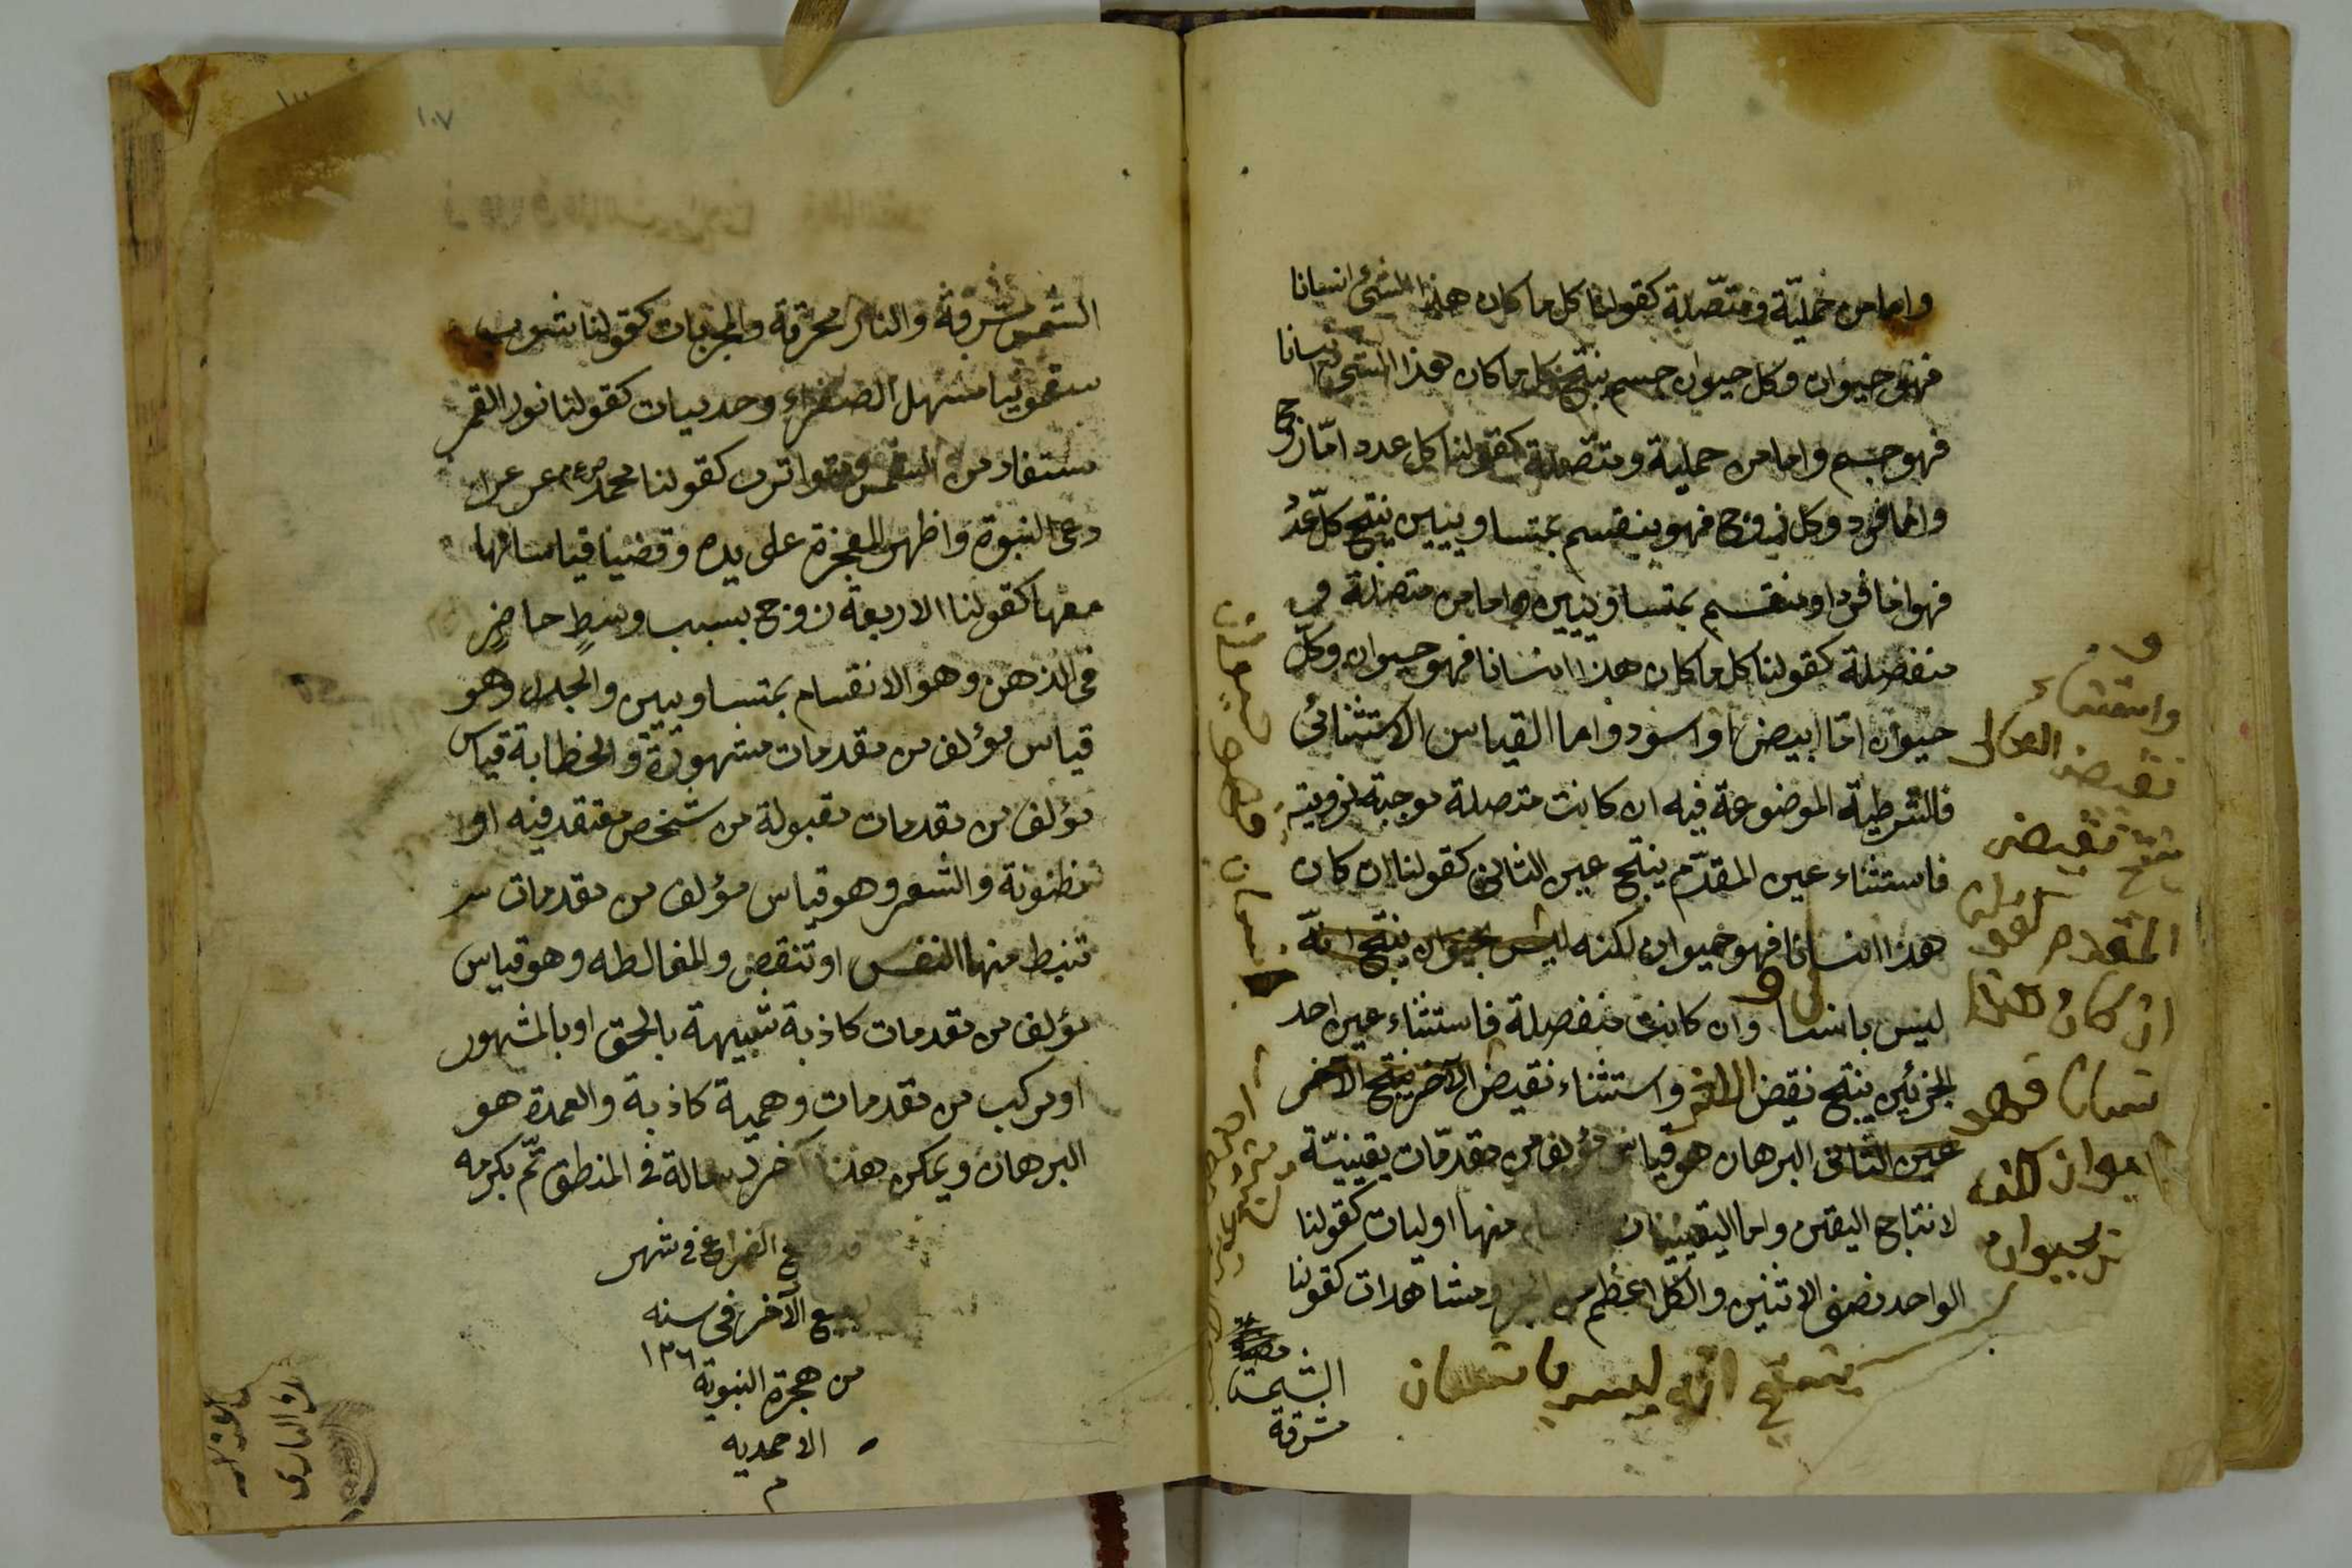 واما من حملية ومتصلة كقولنا كل ما كان هذا الشئ انسانا
فهو حيوان وكل حيوان جسم ينتج كل ما كان هذا الشئ انسانا
فهو جسم واما من حملية ومنفصلة كقولنا كل عدد امّا زوج
واما فرد وكل زوج فهو ينقسم بمتساويين ينتج كل عدد
فهو اما فرد او منقسم بمتساويين واما من متصلة و
منفصلة كقولنا كل ما كان هذا انسانا فهو حيوان وكل
حيوان امّا ابيض او اسود واما القياس الاستثنائى
فالشرطية الموضوعة فيه ان كانت متصلة موجبة لزومية
فاستثناء عين المقدّم ينتج عين الثانى كقولنا ان كان
هذا انسانا فهو حيوان لكنه ليس بحيوان ينتج انه
ليس بانسا وان كانت منفصلة فاستثناء عين احد
الجزئين ينتج نقيض الاخر واستثناء نقيض الآخر ينتج الآخر
عين الثانى البرهان هو قياس مؤلف من مقدّمات يقينيّة
لانتاج اليقين واما اليقينيات منها اوليات كقولنا
الواحد نصف الاثنين والكل اعظم من الجزء ومشاهدات كقولنا
واستثناء
نقيض التالى
ينتج نقيض
المقدم كقولنا
ان كان هذا
انسانا فهو
حيوان لكنه
ليس بحيوان
ينتج انه ليس بانسان
الشمس
مشرقة
١٠٧
الشمس مشرقة والنار محرقة والمجربات كقولنا شرب
سقمونيا مسهل الصفراء وحدسيات كقولنا نور القمر
مستفاد من الشمس ومتواترت كقولنا محمد
دعى النبوة واظهر المعجزة على يده وقضيا قياساتها
معها كقولنا الاربعة زوج بسبب وسطٍ حاضرٍ
فى الذهن وهو الانقسام بمتساويين والجدل وهو
قياس مؤلف من مقدمات مشهورة والخطابة قياس
مؤلف من مقدمات مقبولة من شخص معتقد فيه او
مظنونة والشعر وهو قياس مؤلف من مقدمات
تنبسط منها النفس او تنقبض والمغالطه وهو قياس
مؤلف من مقدمات كاذبة شبيهة بالحق او بالمشهور
او مركب من مقدمات وهمية كاذبة والعمدة هو
البرهان ويمكن هذا آخر رسالة فى المنطق تمّ بكرمه
قد وقع الفراغ فى شهر
ربيع الآخر فى سنه
١٣٦
من هجرة النبوية
الاحمديه
م